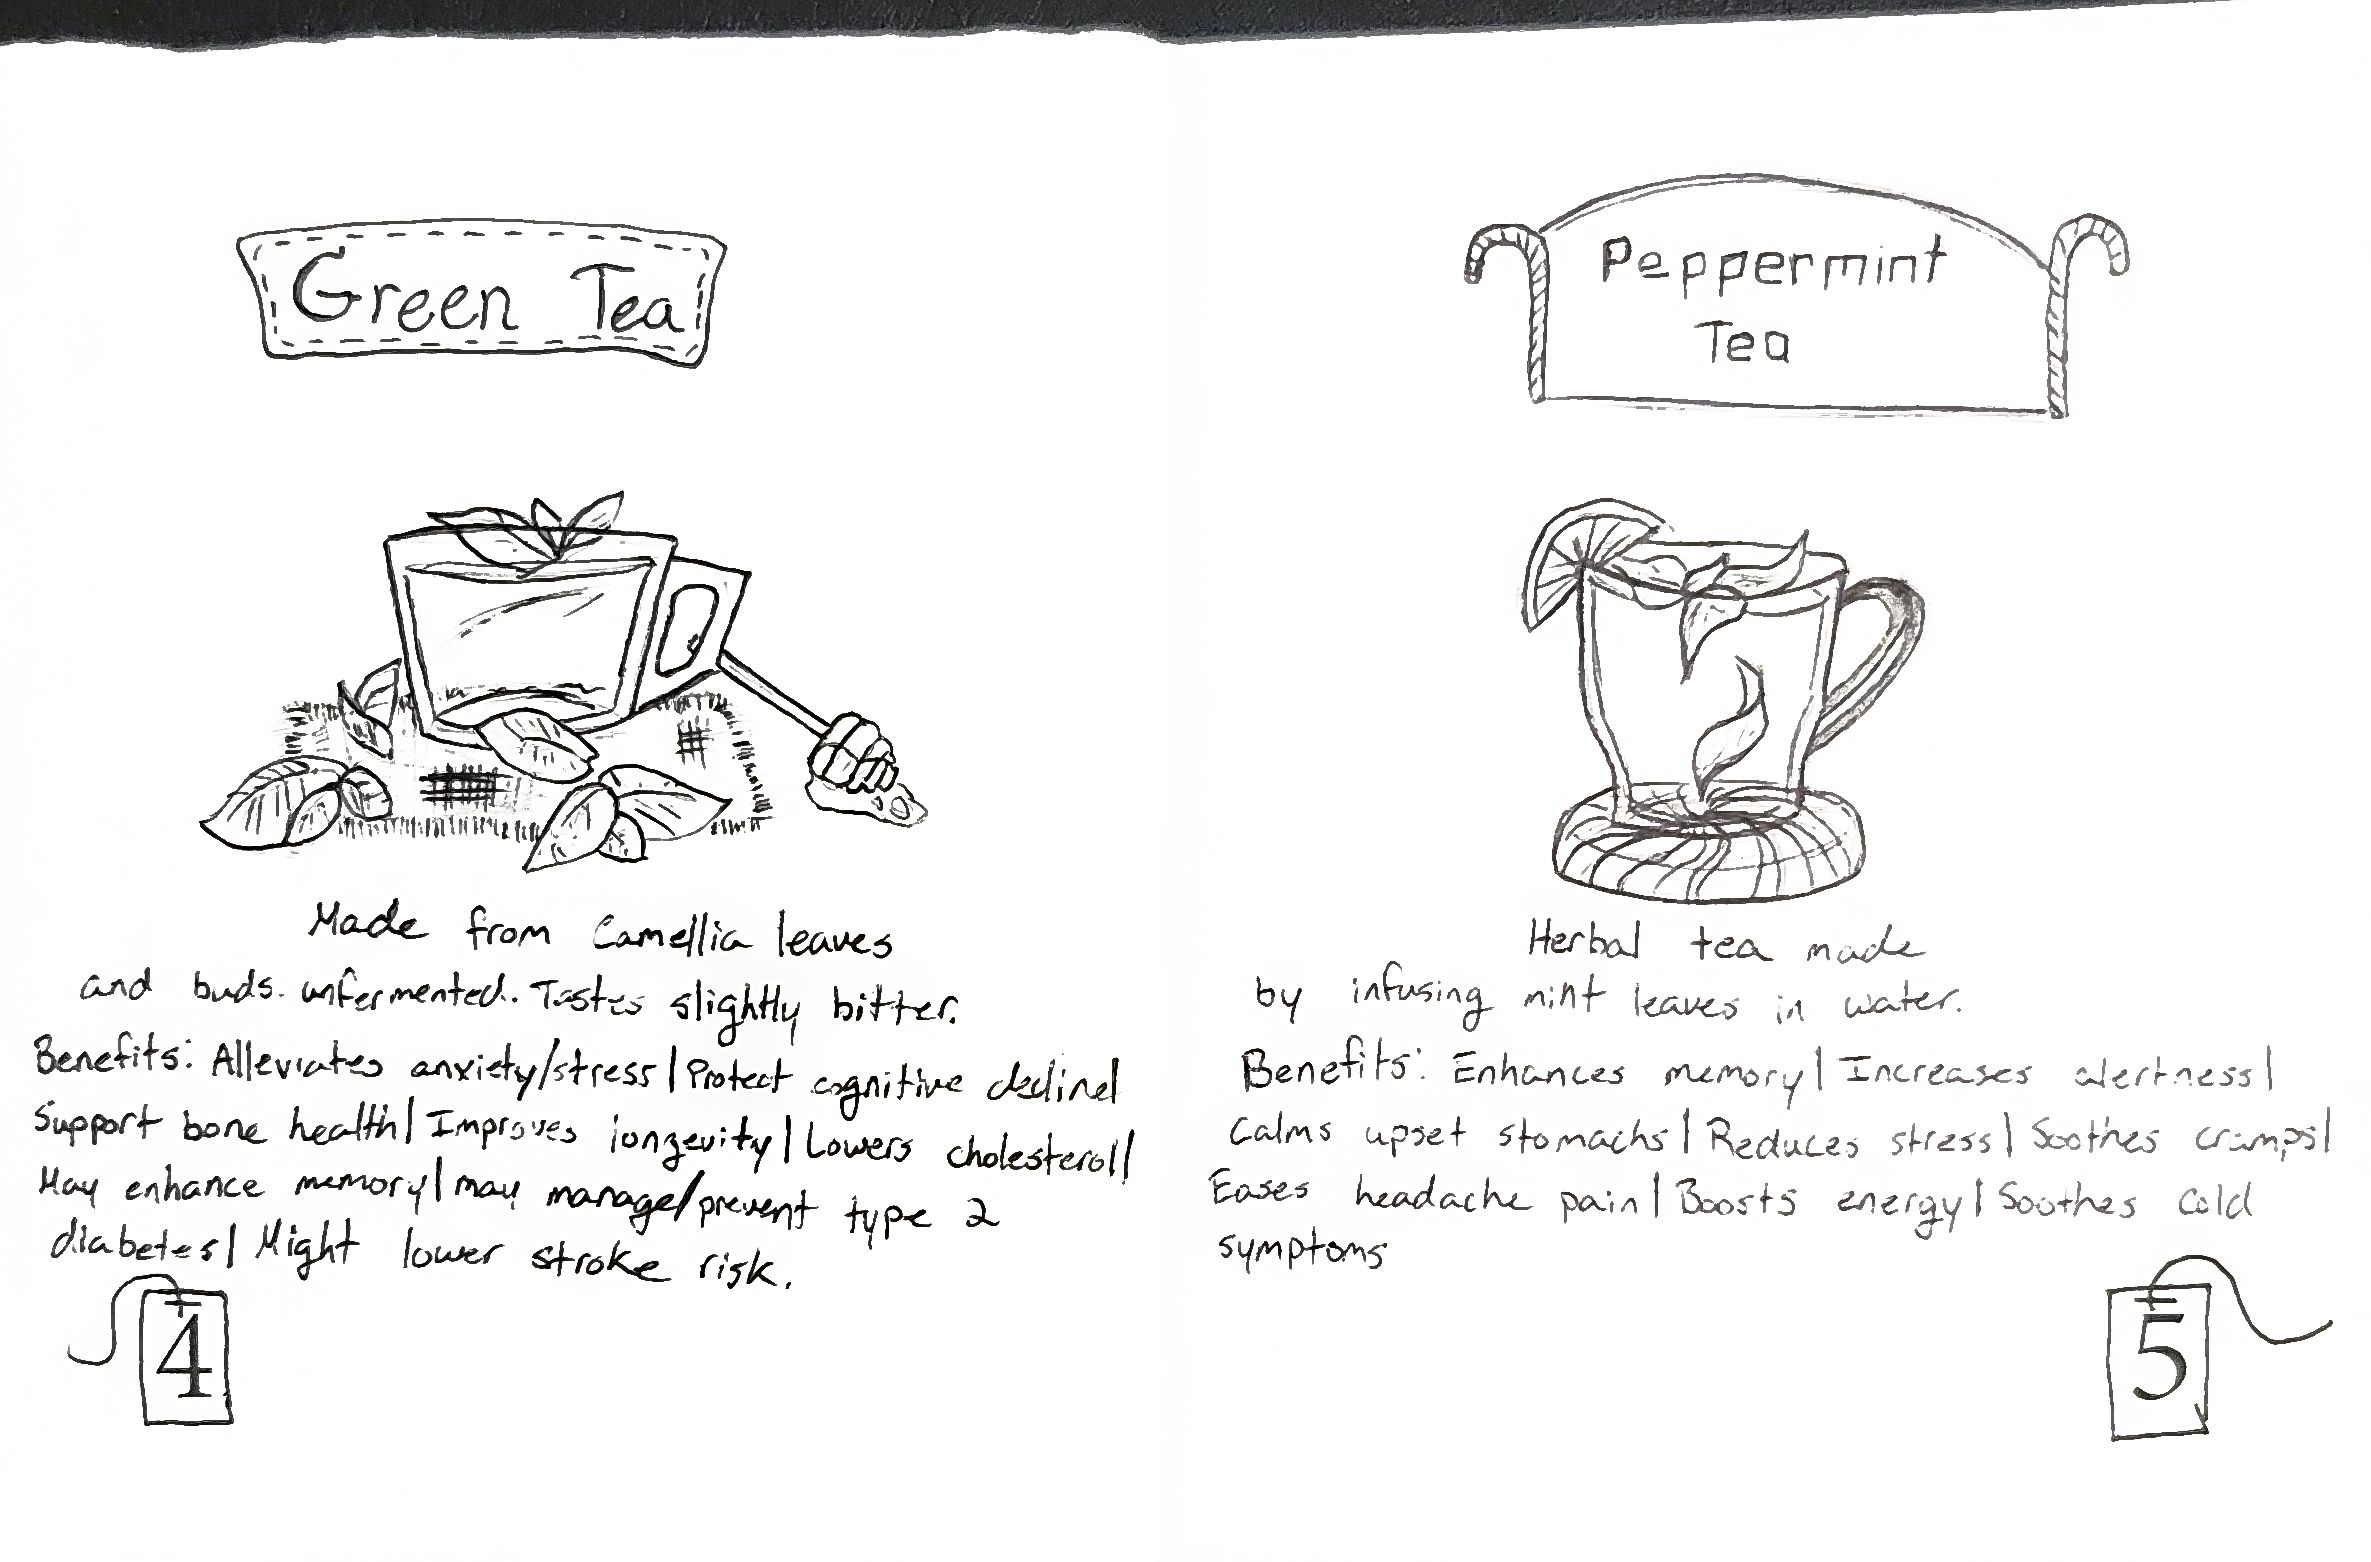 Green Tea
Made from Camellia leaves
and buds. unfermented. Tastes slightly bitter.
Benefits: Alleviates anxiety/stress | Protect cognitive decline |
Support bone health | Improves longevity | Lowers cholesterol |
May enhance memory | may manage/prevent type 2
diabetes | Might lower stroke risk.
4
Peppermint
Tea
Herbal tea made
by infusing mint leaves in water.
Benefits: Enhances memory | Increases alertness |
Calms upset stomachs | Reduces stress | Soothes cramps |
Eases headache pain | Boosts energy | Soothes cold
symptoms
5